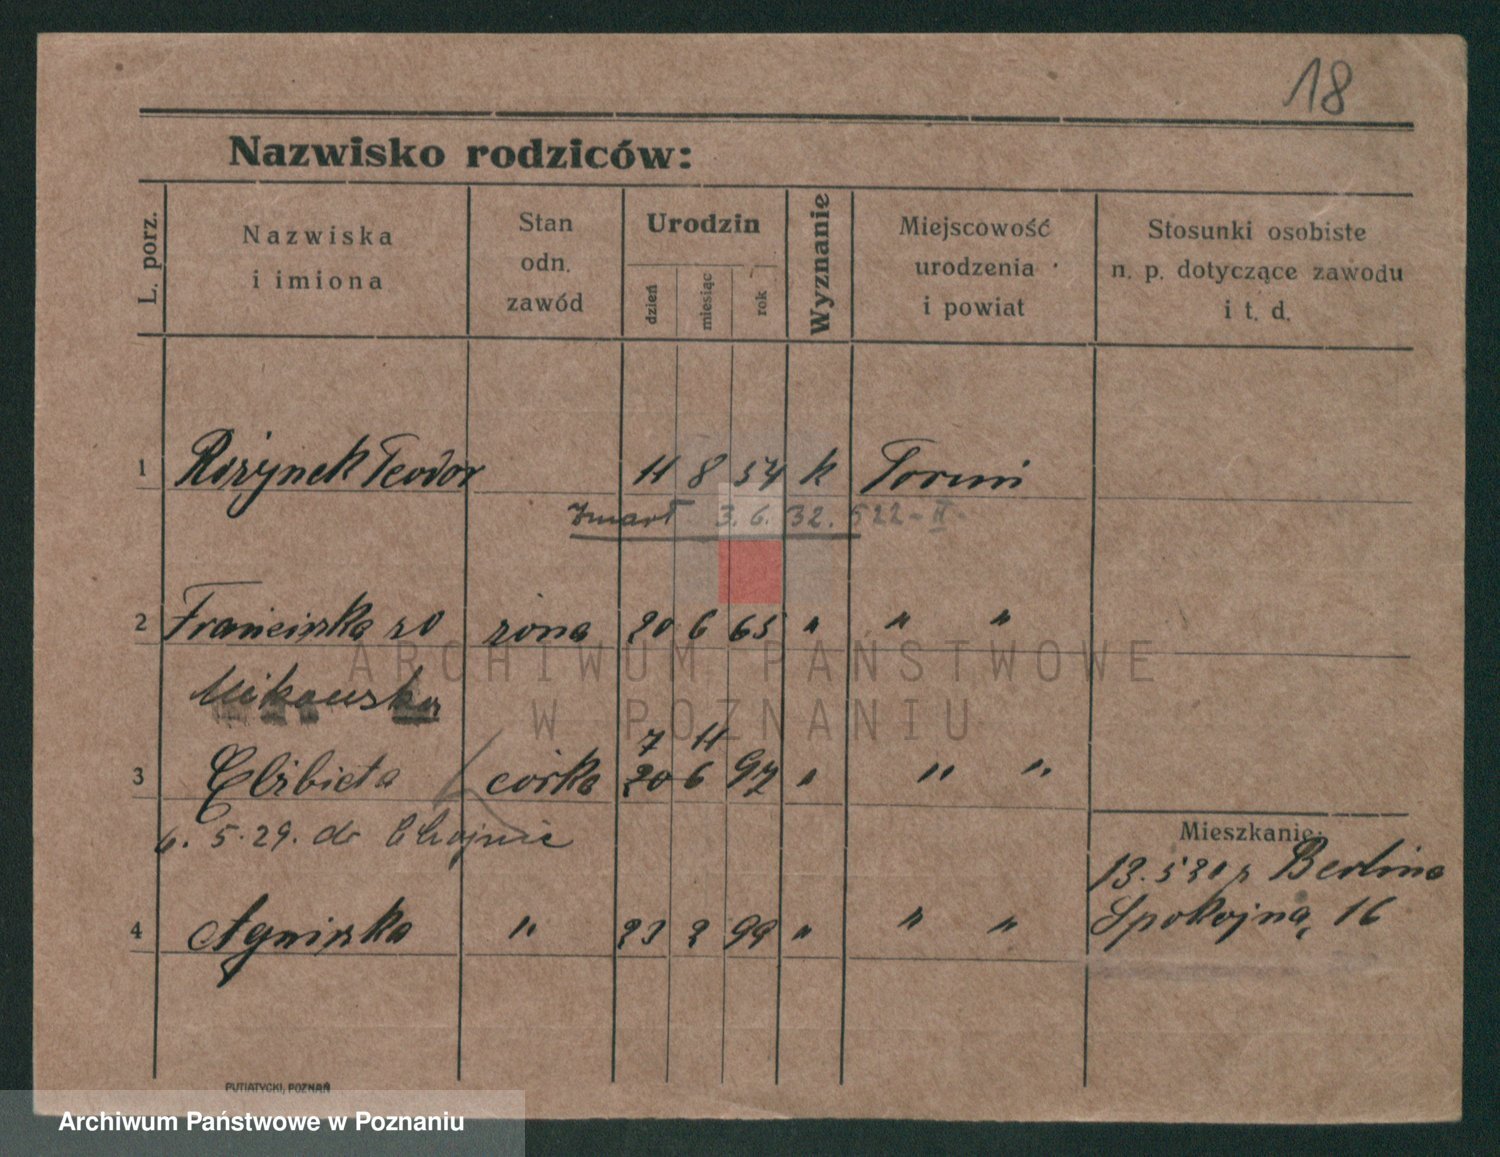 18
Nazwisko rodziców:
L. porz.
Nazwiska
i imiona
Stan
odn.
zawód
Urodzin
dzień
miesiąc
rok
Wyznanie
Miejscowość
urodzenia
i powiat
Stosunki osobiste
n. p. dotyczące zawodu
i t. d.
1 Rożynek Teodor 11 8 54 k Toruń
Zmarł 3. 6. 32. 522-II-
2 Franciszka zd żona 20 6 65 " " "
7 11
3 Elżbieta córka 20 6 97 " " "
6. 5. 29. do Chojnic
Mieszkanie:
Berlina
4 Agnieszka " 23 2 99 " " "
Spokojna, 16
ARCHIWUM PAŃSTWOWE
W POZNANIU
PUTIATYCKI, POZNAŃ
Archiwum Państwowe w Poznaniu